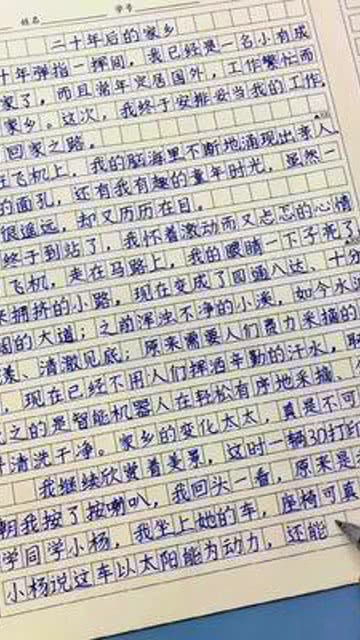 姓名 学号
二十年后的家乡
十年弹指一挥间，我已经是一名小有成
家了，而且常年定居国外，工作繁忙而
家乡。这次，我终于安排妥当我的工作，
回家之路。
飞机上，我的脑海里不断地涌现出亲人
的面孔，还有我有趣的童年时光，虽然一
很遥远，却又历历在目。
终于到站了，我怀着激动而又忐忑的心情
飞机，走在马路上，我的眼睛一下子亮了
来拥挤的小路，现在变成了四通八达、十分
阔的大道；之前浑浊不净的小溪，如今水
漾、清澈见底；原来需要人们费力采摘的
，现在已经不用人们挥洒辛勤的汗水，取
之的是智能机器人在轻松有序地采摘、
清洗干净。家乡的变化太大，真是不可
我继续欣赏着美景，这时一辆3D打印
朝我按了按喇叭，我回头一看，原来是
学同学小杨，我坐上她的车，座椅可真
小杨说这车以太阳能为动力，还能